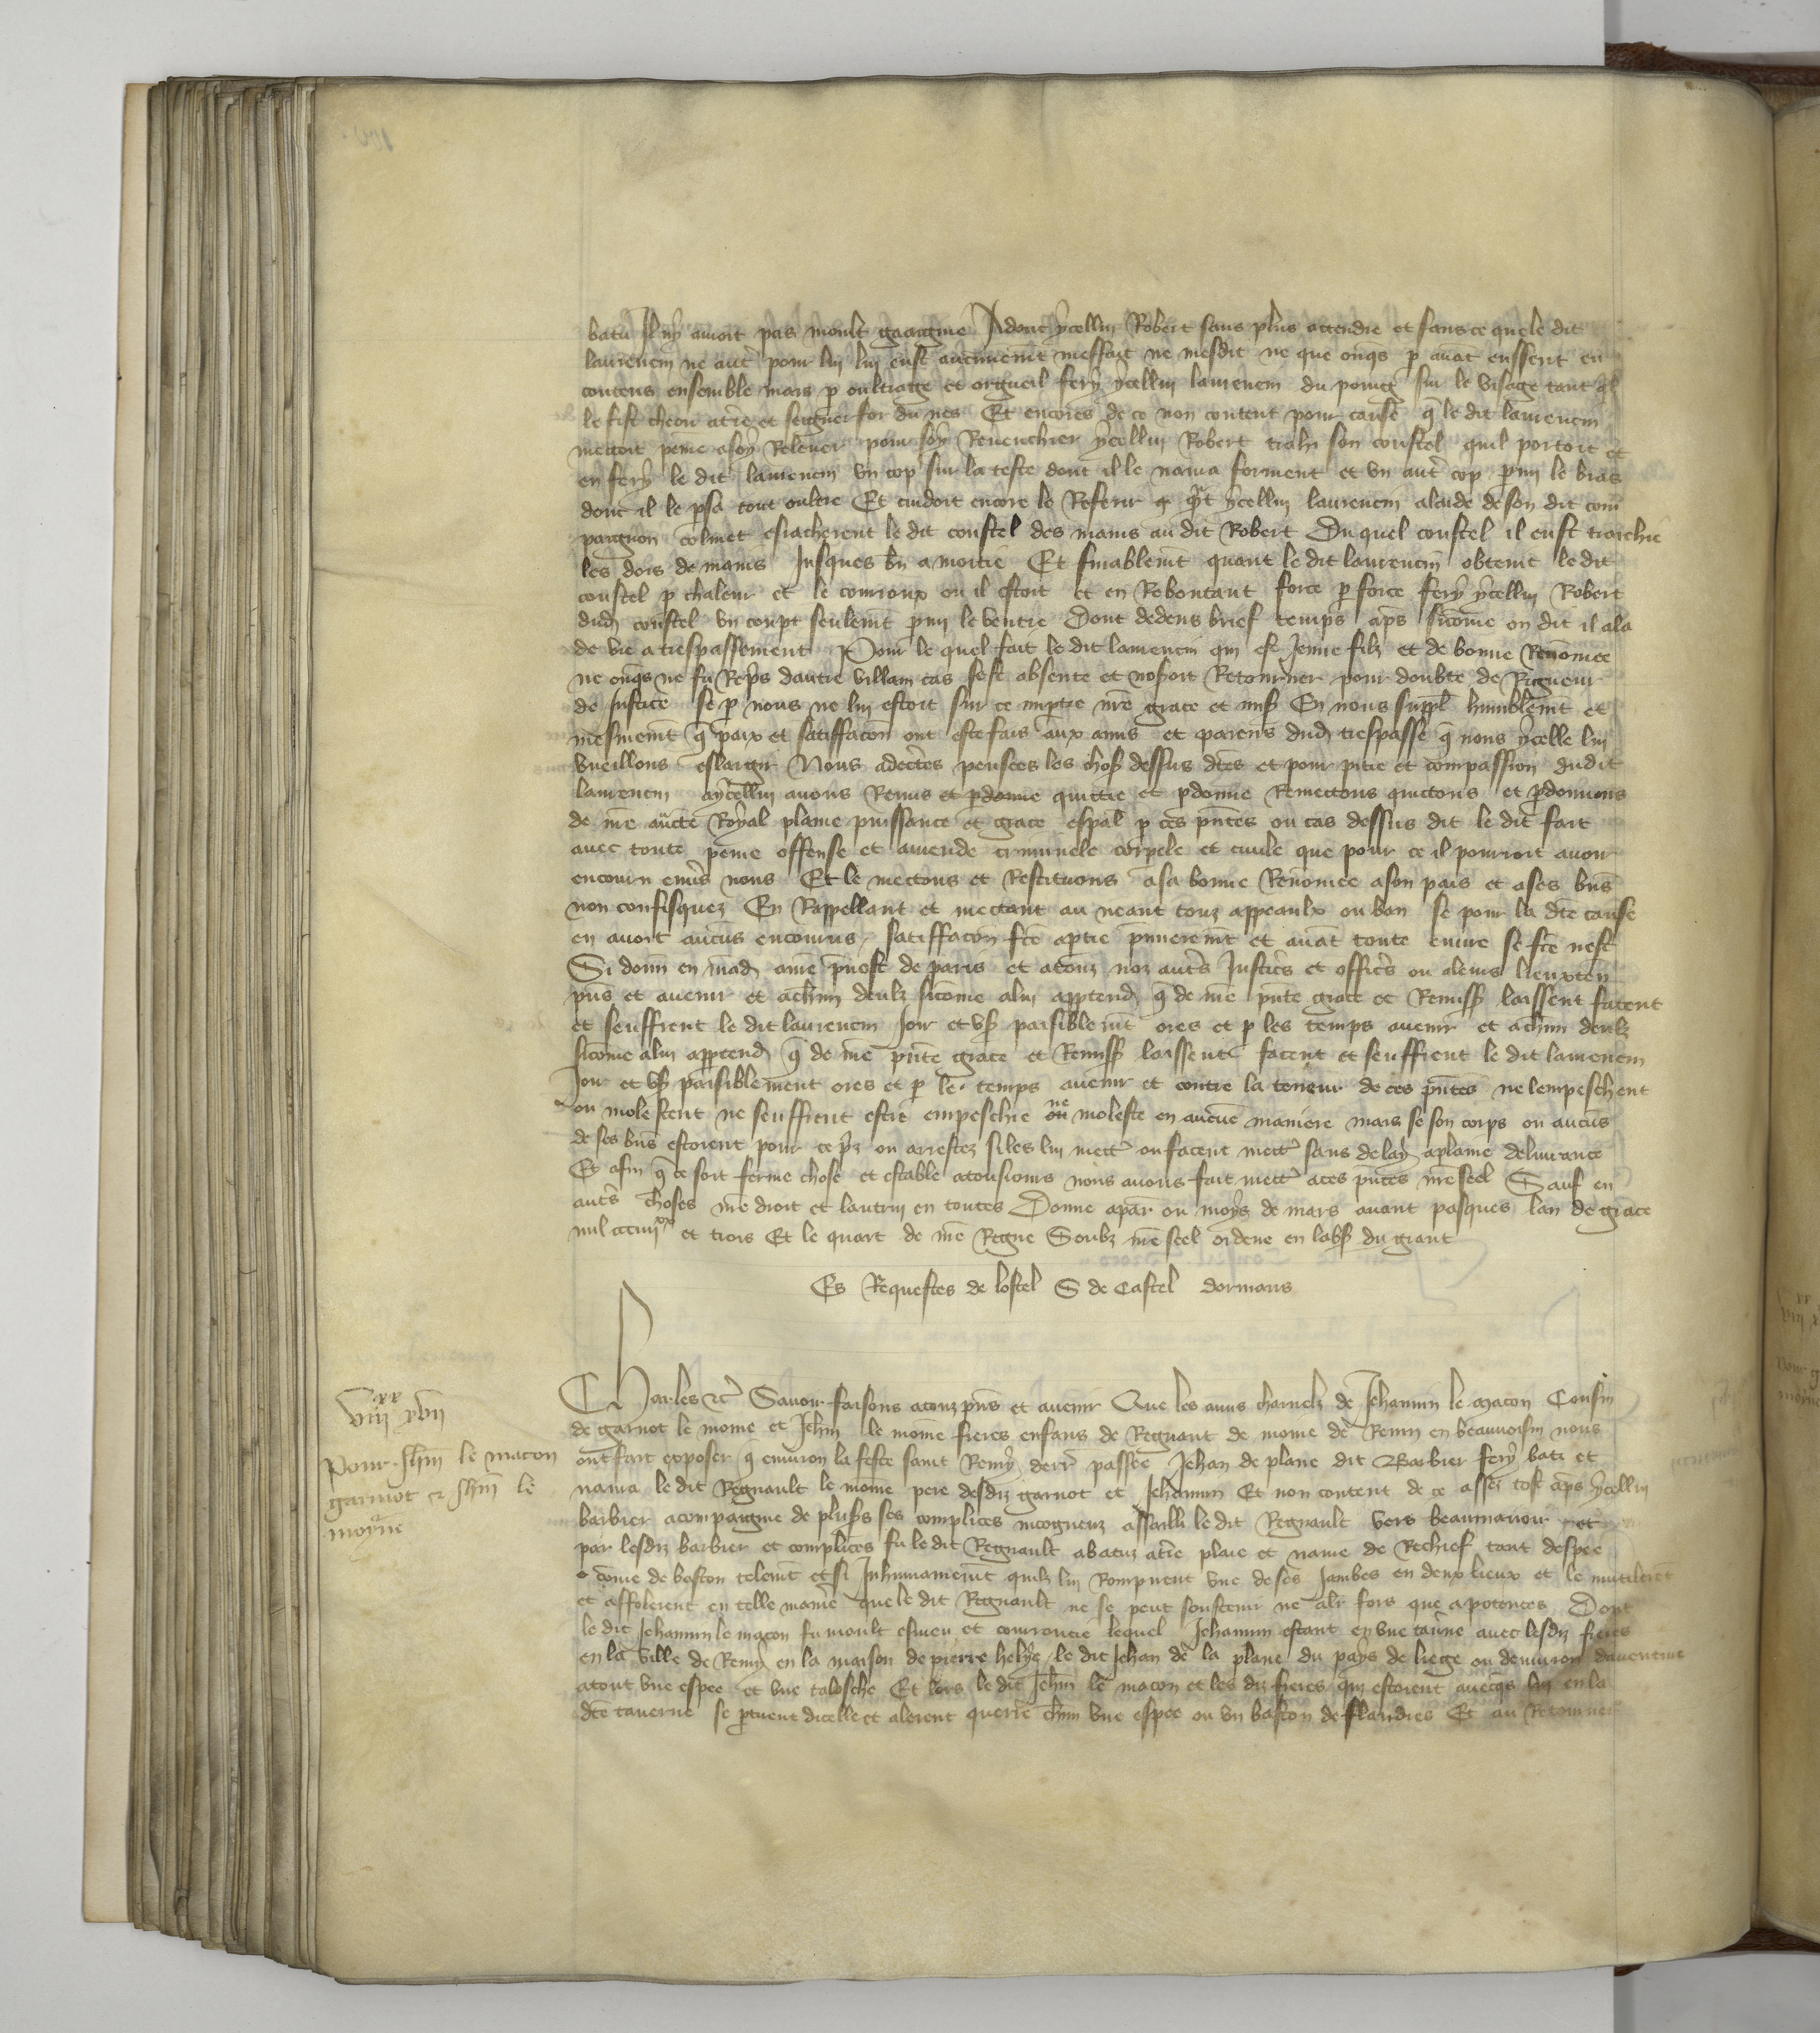 batu Il ny avoit pas moult gaaigné Adonc ycellui Robert sans plus attendre et sans ce que le dit
laurencin ne autre pour lui lui eust aucunement meffait ne mesdit ne que onques par avant eussent eu
contens ensemble mais p oultrage et orgueil fery ycellui laurencin du poing sur le visage tant quil
le fist cheoir a terre et seigner for du nes Et encores de ce non content pour cause q le dit laurencin
mectoit peine a soy Relever pour soy Revenchier ycellui Robert trahi son coustel quil portoit et
en fery le dit laurencin un cop sur la teste dont il le navra forment et un autre cop parmi le bras
dont il le persa tout oultre Et cuidoit encore le Referir ycellui laurencin a laide de son dit com
paignon colinet esracherent le dit coustel des mains au dit Robert Duquel coustel il eust trenchie
les dois de mains Jusques bn a moitie Et finablemt quant le dit laurencin obtenit le dit
coustel p chaleur et le courroux ou il estoit et en Reboutant force p force fery ycellui Robert
dud coustel un coupt seulemt parmi le ventre Dont dedens brief temps aps sicome on dit il ala
de vie a trespassement Pour le quel fait le dit laurencin qui est Jeune filz et de bonne Renomee
ne onqs ne fu Reps dautre villain cas sest absente et nosoit Retourner pour doubte de Rigueur
de Justice se p nous ne lui estoit sur ce impartie nre grace et miss En nous suppl humblemt et
mesmemt q paix et satisfacon ont este fais aux amis et parens dud trespasse q nous ycelle lui
vueillons eslargir Nous adectes pensees les choses dessus dtes et pour pitie et compassion dudit
laurencin a ycellui avons Remis et pdonne quittie et pdonne Remectons quictons et pdonnons
de nre aucte Royal plaine puissance et grace espal p ces pntes ou cas dessus dit le dit fait
avec toute peine offense et amende criminele corpele et civile que pour ce il pourroit avoir
encouru envers nous Et le mectons et Restituons a sa bonne Renomee a son pais et a ses bns
non confisquez En Rappellant et mectant au neant touz appeaulx ou ban se pour la dte cause
en avoit aucuns encourus satisfacon fte a ptie pmieremt et avat toute euvre se fte nest
Si donn en mad au pvost de paris et a touz noz autres Justiciers et officiers ou a leurs lieuxten
pns et avenir et a chun deulz sicome a lui apptend q de nre pnte grace et Remiss laissent facent
et seuffrent le dit laurencin Joir et user paisiblemt ores et p les temps avenir et a chun deulz
sicome a lui apptend q de nre pnte grace et Remiss laissent facent et seuffrent le dit laurencin
Joir et user paisiblement ores et p le temps avenir et contre la teneur de ces pntes ne lempeschent
ou molestent ne seuffrent estre empeschie ou ne moleste en aucune maniere mais se son corps ou aucus
de ses bns estoient pour ce prz ou arrestez si les lui mett ou facent mett sans delay a plaine delivrance
Et afin q ce soit ferme chose et estable a tousiours nous avons fait mett a ces pntes nre seel Sauf en
autres choses nre droit et lautrui en toutes Donne a par ou moys de mars avant pasques lan de grace
mil ccc iiii xx et trois Et le quart de nre Regne Soubz nre seel ordene en labs du grant
Es Requestes de lostel S de Castel dormans
viii xx xvii
Pour Jhn le macon
garnot et Jhn le
moyne
Charles etc Savoir faisons a touz pns et avenir Que les amis charnelz de Jehannin le macon Cousin
de garnot le moine et Jehn le moine freres enfans de Regnaut de moine de Remy en beauvoisin nous
ont fait exposer q environ la feste saint Remy derr passee Jehan de plane dit Barbier fery bati et
navra le dit Regnault le moine pere desdiz garnot et Jehannin Et non content de ce assez tost aps ycellui
barbier acompaigne de pluss ses complices incogneuz assailli le dit Regnault vers beaumanoir et
par lesdiz barbier et complices fu le dit Regnault abatuz a tre plaie et navre de Rechief tant despee
come de baston telemt et si Inhumainemt quilz lui Rompirent une de ses Jambes en deux lieux et le mutilerent
et affolerent en telle maniere que le dit Regnault ne se peut soustenir ne aler fors que a potences Dont
le dit Jehannin le macon fu moult esmeu et courroucie lequel Jehannin estant en une taverne avec lesdiz freres
en la ville de Remy en la maison de pierre helye le dit Jehan de la plane du pays de liege ou denviron daventure
atout une espee et une talosche Et lors le dit Jehn le macon et les diz freres qui estoient avecqs lui en la
dte taverne se ptirent dicelle et alerent querre chun une espee ou un baston de flandres Et au Retourner